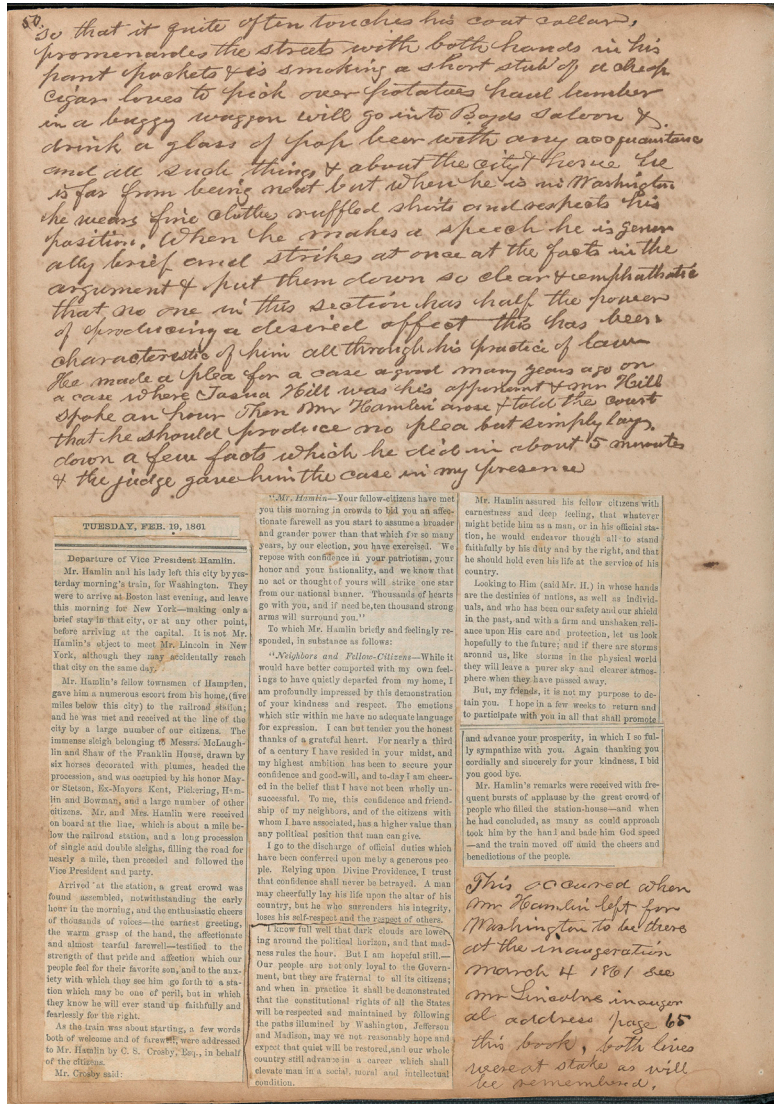 50.
so that it quite often touches his coat collar,
promenades the streets with both hands in his
pant pockets & is smoking a short stub of a cheap
cigar loves to pick over potatoes haul lumber
in a buggy waggon will go into Boyds Saloon &
drink a glass of pop beer with any acquaintance
and all such things & about the city & home he
is far from being neat but when he is in Washington
he wears fine clothes ruffled shirts and respects his
position. When he makes a speech he is gener
ally brief and strikes at once at the facts in the
argument & put them down so clear & emphathatic
that no one in this section has half the power
of producing a desired effect this has been
characteristic of him all through his practice of law
He made a plea for a case a good many years ago on
a case where Josua Hill was his opponent & mr Hill
spoke an hour Then Mr Hamlin arose & told the court
that he should produce no plea but simply lays
down a few facts which he did in about 5 minutes
& the judge gave him the case in my presence
TUESDAY, FEB. 19, 1861
Departure of Vice President Hamlin.
Mr. Hamlin and his lady left this city by yes-
terday morning's train, for Washington. They
were to arrive at Boston last evening, and leave
this morning for New York—making only a
brief stay in that city, or at any other point,
before arriving at the capital. It is not Mr.
Hamlin's object to meet Mr. Lincoln in New
York, although they may accidentally reach
that city on the same day.
Mr. Hamlin's fellow townsmen of Hampden,
gave him a numerous escort from his home, (five
miles below this city) to the railroad station;
and he was met and received at the line of the
city by a large number of our citizens. The
immense sleigh belonging to Messrs. McLaugh-
lin and Shaw of the Franklin House, drawn by
six horses decorated with plumes, headed the
procession, and was occupied by his honor May-
or Stetson, Ex-Mayors Kent, Pickering, Ham-
lin and Bowman, and a large number of other
citizens. Mr. and Mrs. Hamlin were received
on board at the line, which is about a mile be-
low the railroad station, and a long procession
of single and double sleighs, filling the road for
nearly a mile, then preceded and followed the
Vice President and party.
Arrived at the station, a great crowd was
found assembled, notwithstanding the early
hour in the morning, and the enthusiastic cheers
of thousands of voices—the earnest greeting,
the warm grasp of the hand, the affectionate
and almost tearful farewell—testified to the
strength of that pride and affection which our
people feel for their favorite son, and to the anx-
iety with which they see him go forth to a sta-
tion which may be one of peril, but in which
they know he will ever stand up faithfully and
fearlessly for the right.
As the train was about starting, a few words
both of welcome and of farewell, were addressed
to Mr. Hamlin by C. S. Crosby, Esq., in behalf
of the citizens.
Mr. Crosby said:
"Mr. Hamlin—Your fellow-citizens have met
you this morning in crowds to bid you an affec-
tionate farewell as you start to assume a broader
and grander power than that which for so many
years, by our election, you have exercised. We
repose with confidence in your patriotism, your
honor and your nationality, and we know that
no act or thought of yours will strike one star
from our national banner. Thousands of hearts
go with you, and if need be, ten thousand strong
arms will surround you."
To which Mr. Hamlin briefly and feelingly re-
sponded, in substance as follows:
"Neighbors and Fellow-Citizens—While it
would have better comported with my own feel-
ings to have quietly departed from my home, I
am profoundly impressed by this demonstration
of your kindness and respect. The emotions
which stir within me have no adequate language
for expression. I can but tender you the honest
thanks of a grateful heart. For nearly a third
of a century I have resided in your midst, and
my highest ambition has been to secure your
confidence and good-will, and to-day I am cheer-
ed in the belief that I have not been wholly un-
successful. To me, this confidence and friend-
ship of my neighbors, and of the citizens with
whom I have associated, has a higher value than
any political position that man can give.
I go to the discharge of official duties which
have been conferred upon me by a generous peo-
ple. Relying upon Divine Providence, I trust
that confidence shall never be betrayed. A man
may cheerfully lay his life upon the altar of his
country, but he who surrenders his integrity,
loses his self-respect and the respect of others.
I know full well that dark clouds are lower-
ing around the political horizon, and that mad-
ness rules the hour. But I am hopeful still.—
Our people are not only loyal to the Govern-
ment, but they are fraternal to all its citizens;
and when in practice it shall be demonstrated
that the constitutional rights of all the States
will be respected and maintained by following
the paths illumined by Washington, Jefferson
and Madison, may we not reasonably hope and
expect that quiet will be restored, and our whole
country still advance in a career which shall
elevate man in a social, moral and intellectual
condition.
Mr. Hamlin assured his fellow citizens with
earnestness and deep feeling, that whatever
might betide him as a man, or in his official sta-
tion, he would endeavor though all to stand
faithfully by his duty and by the right, and that
he should hold even his life at the service of his
country.
Looking to Him (said Mr. H.) in whose hands
are the destinies of nations, as well as individ-
uals, and who has been our safety and our shield
in the past, and with a firm and unshaken reli-
ance upon His care and protection, let us look
hopefully to the future; and if there are storms
around us, like storms in the physical world
they will leave a purer sky and clearer atmos-
phere when they have passed away.
But, my friends, it is not my purpose to de-
tain you. I hope in a few weeks to return and
to participate with you in all that shall promote
and advance your prosperity, in which I so ful-
ly sympathize with you. Again thanking you
cordially and sincerely for your kindness, I bid
you good bye.
Mr. Hamlin's remarks were received with fre-
quent bursts of applause by the great crowd of
people who filled the station-house—and when
he had concluded, as many as could approach
took him by the hand and bade him God speed
—and the train moved off amid the cheers and
benedictions of the people.
This occured when
Mr Hamlin left for
Washington to be there
at the inaugeration
march 4 1861 see
mr Lincolns inaugur
al address page 65
this book, both lives
were at stake as will
be remembered.